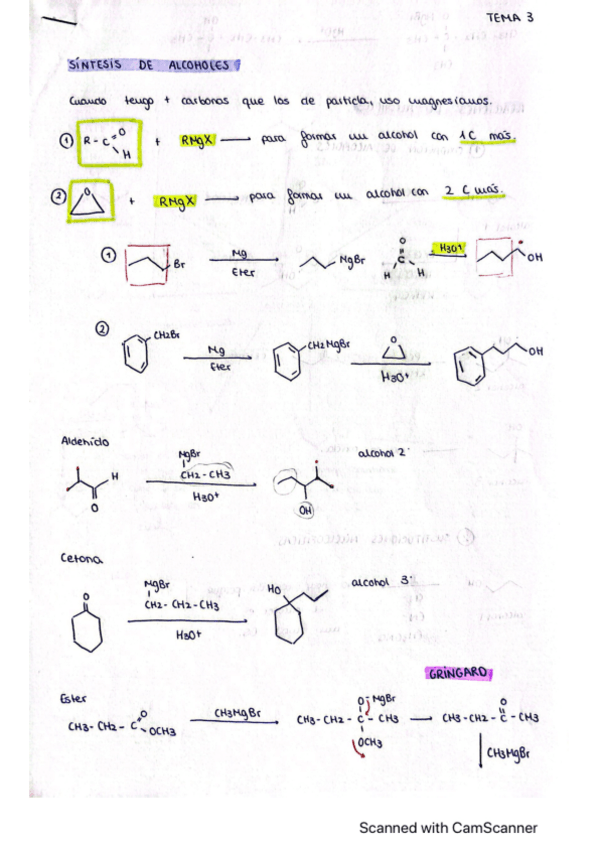 TEMA 3
SÍNTESIS DE ALCOHOLES
Cuando tengo + carbonos que los de partida, uso magnesianos.
① R - C =O H + RMgX → para formar un alcohol con 1C más.
② O + RMgX → para formar un alcohol con 2 C más.
① Br Mg Eter MgBr O C H H H3O+ OH
② CH2Br Mg Eter CH2MgBr O H3O+ OH
Aldehído
H O MgBr CH2-CH3 H3O+ OH alcohol 2º
Cetona
O MgBr CH2-CH2-CH3 H3O+ HO alcohol 3º
GRINGARD
Ester
CH3-CH2-C =O OCH3 CH3MgBr CH3-CH2-C-CH3 O MgBr OCH3 → CH3-CH2-C-CH3 O
CH3MgBr
Scanned with CamScanner